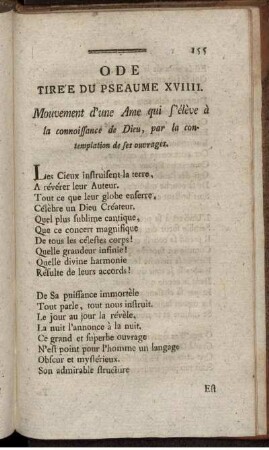 155
ODE
TIRE'E DU PSEAUME XVIIII.
Mouvement d'une Ame qui s'élève à
la connoiſſance de Dieu, par la con-
templation de ſes ouvrages.
Les Cieux inſtruiſent la terre,
A révérer leur Auteur.
Tout ce que leur globe enſerre,
Célèbre un Dieu Créateur.
Quel plus ſublime cantique,
Que ce concert magnifique
De tous les céleſtes corps!
Quelle grandeur infinie!
Quelle divine harmonie
Réſulte de leurs accords!
De Sa puiſſance immortèle
Tout parle, tout nous inſtruit.
Le jour au jour la révèle,
La nuit l'annonce à la nuit.
Ce grand et ſuperbe ouvrage
N'eſt point pour l'homme un langage
Obſcur et myſtérieux.
Son admirable ſtructure
Eſt